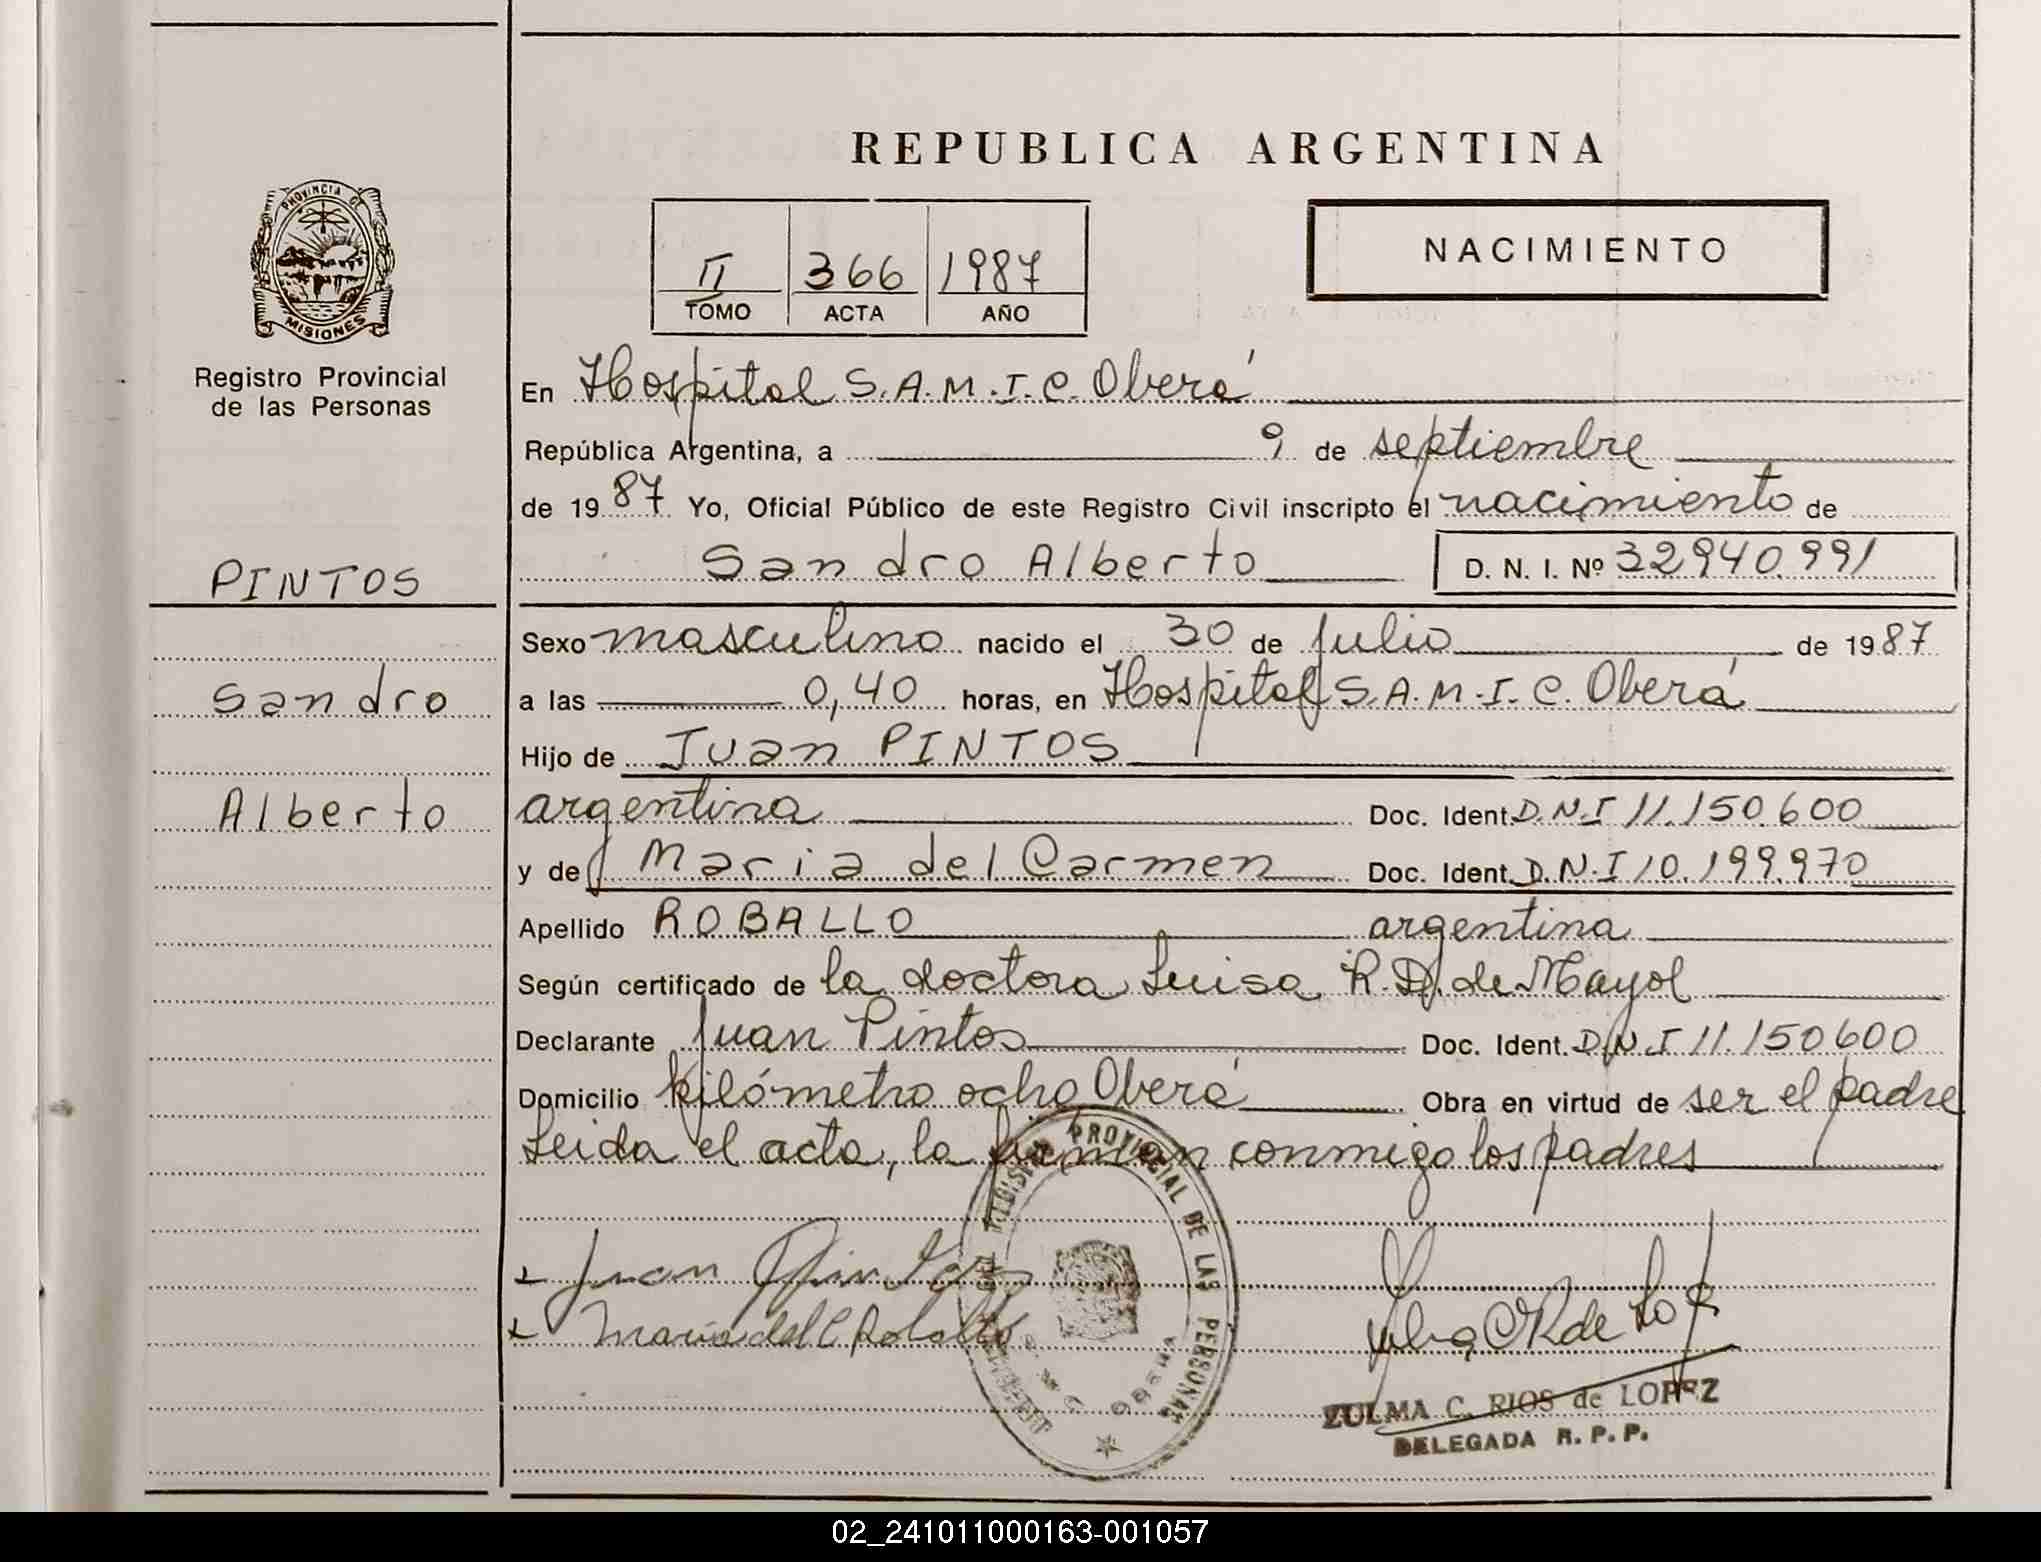 PROVINCIA DE
MISIONES
Registro Provincial
de las Personas
PINTOS
Sandro
Alberto
REPUBLICA ARGENTINA
II 366 1987
TOMO ACTA AÑO
NACIMIENTO
En Hospital S.A.M.I.C. Oberá
República Argentina, a 9 de septiembre
de 1987 Yo, Oficial Público de este Registro Civil inscripto el nacimiento de
Sandro Alberto D. N. I. Nº 32940.991
Sexo masculino nacido el 30 de julio de 1987
a las 0,40 horas, en Hospital S.A.M.I.C. Oberá
Hijo de Juan PINTOS
argentina Doc. Ident. D.N.I 11.150.600
y de Maria del Carmen Doc. Ident. D.N.I 10.199.970
Apellido ROBALLO argentina
Según certificado de la doctora Luisa R. D. de Mayol
Declarante Juan Pintos Doc. Ident. D.N.I 11.150600
Domicilio kilómetro ocho Oberá Obra en virtud de ser el padre
Leida el acta, la firman conmigo los padres
PROVINCIAL DE LAS PERSONAS
OBERA
Juan Pintos
Maria del C Roballo
ZULMA C. RIOS de LOPEZ
DELEGADA R. P. P.
02_241011000163-001057